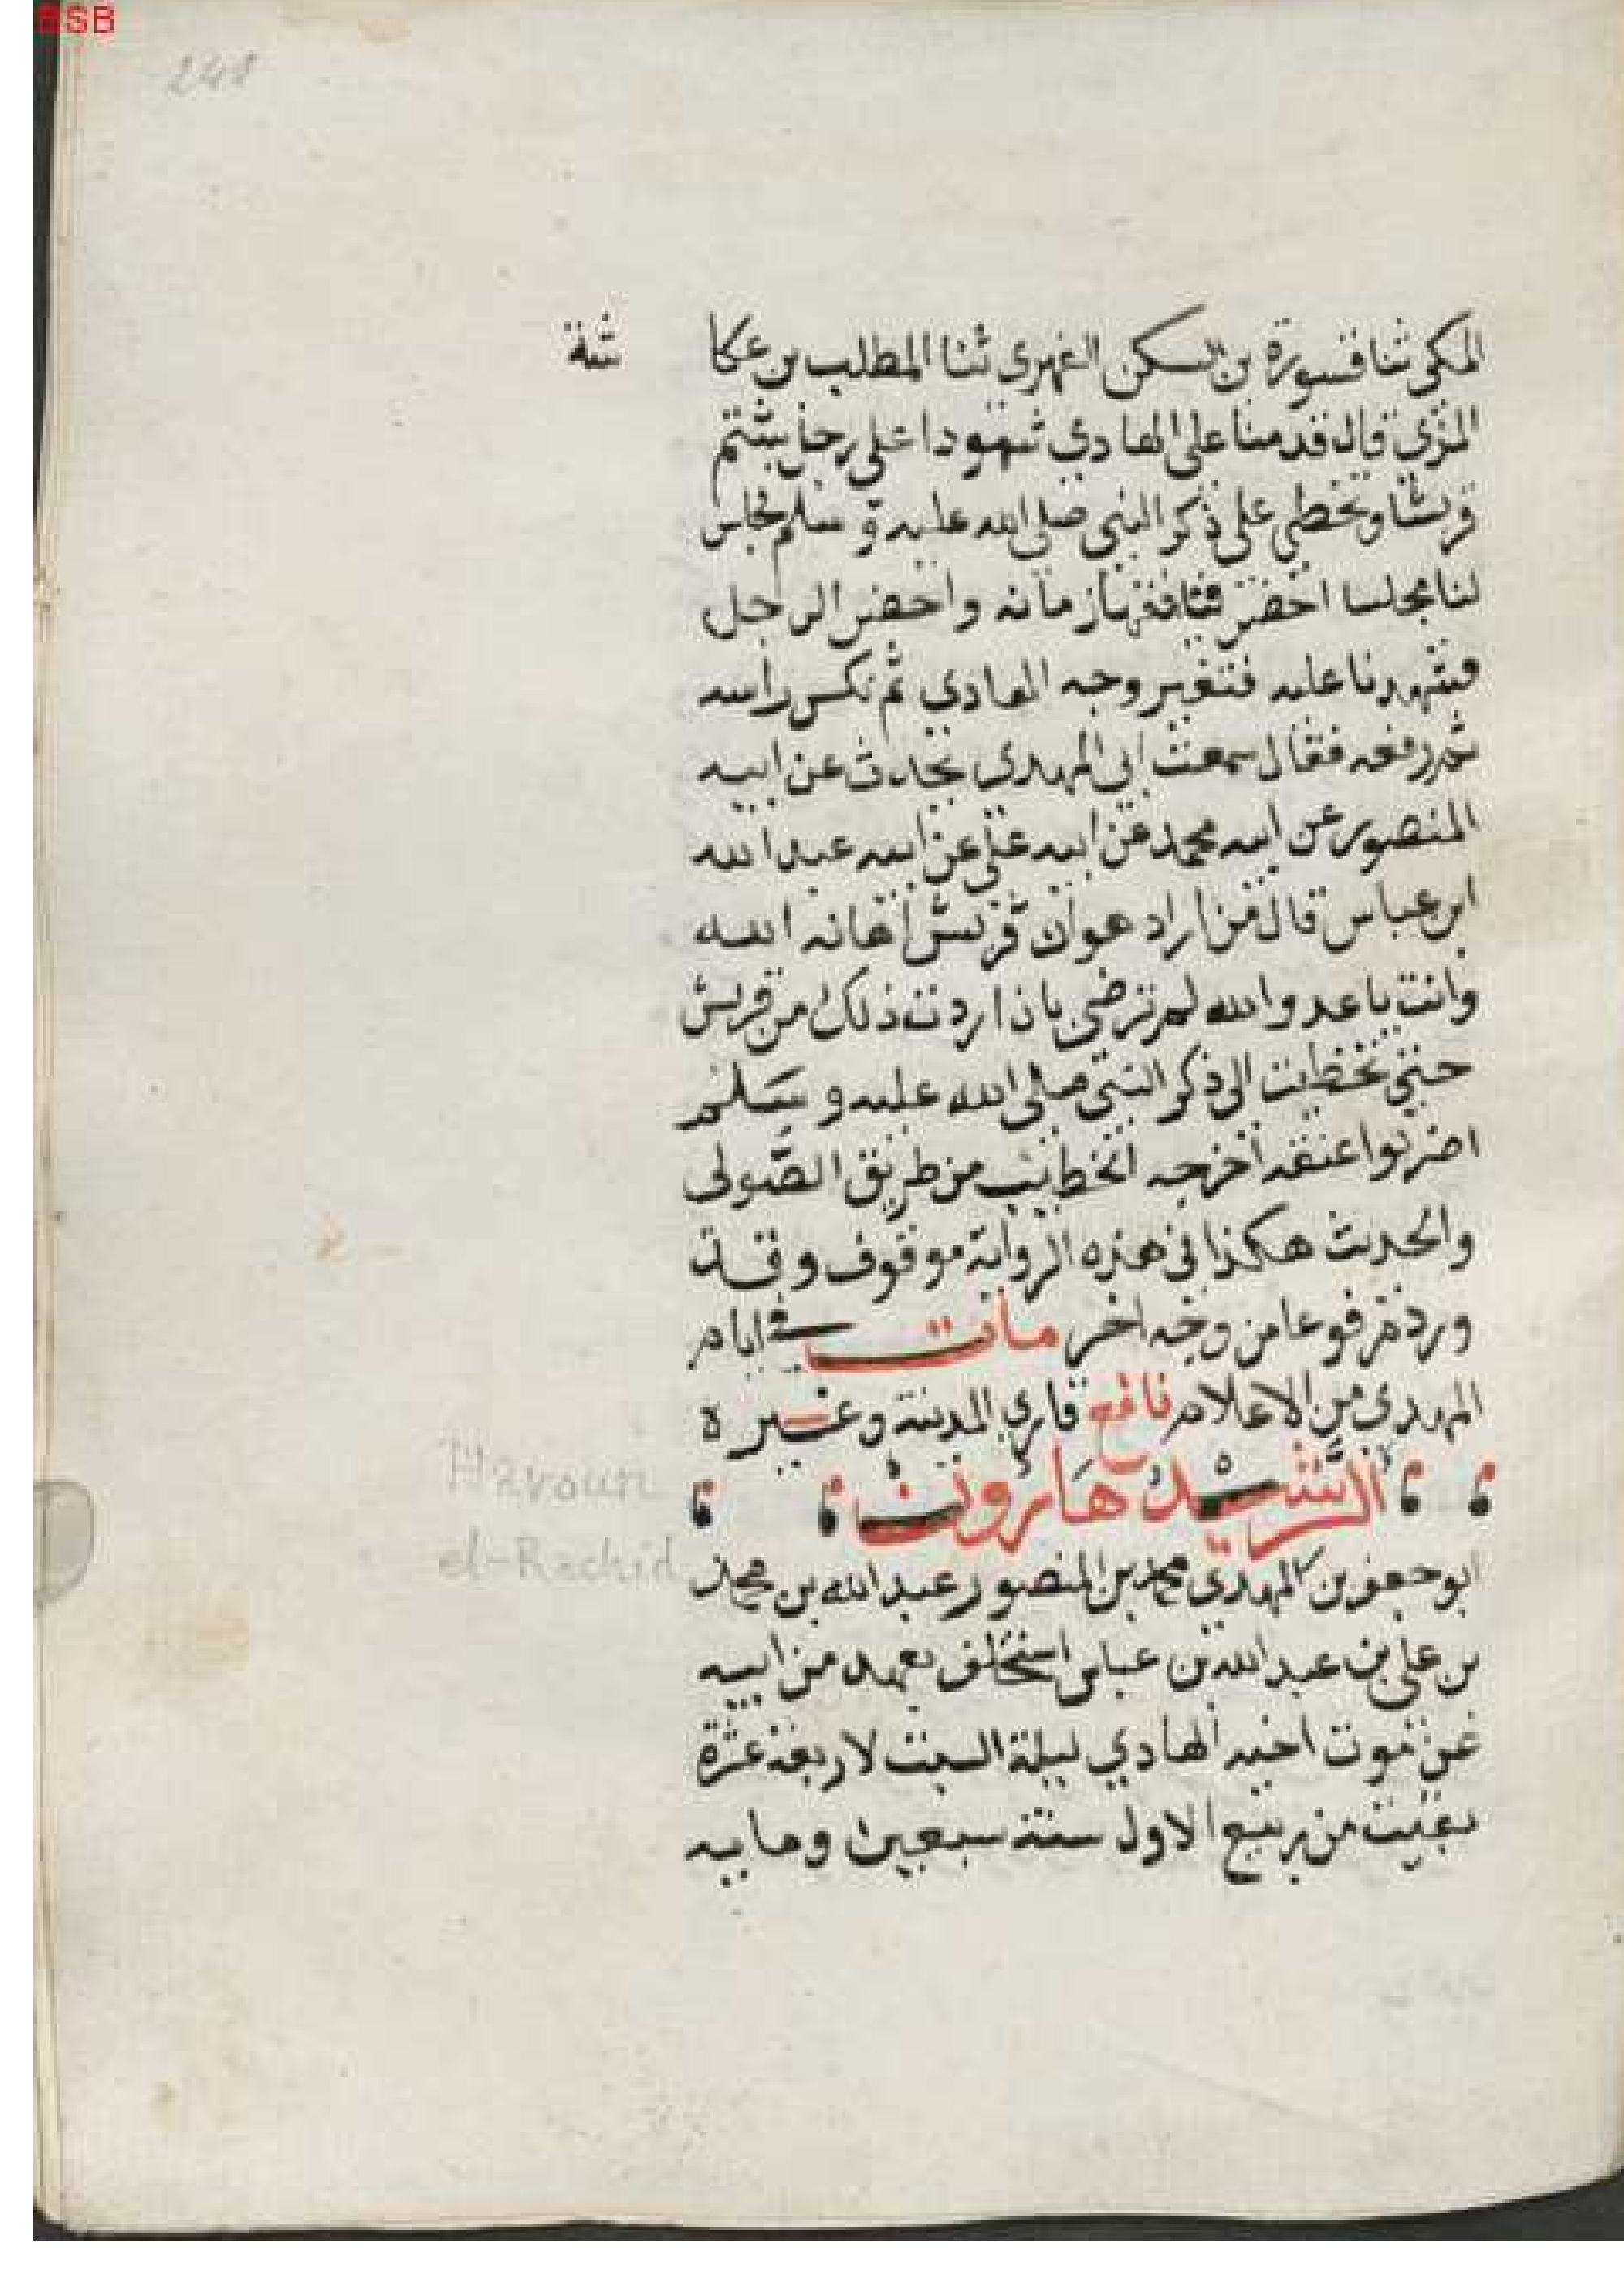 BSB
248
المكي ثنا قسورة بن السكن الفهري ثنا المطلب بن عكا
شة
المزي قال قدمنا على الهادي شهودا على رجل يشتم
قريشا وتخطي على ذكر النبي صلى الله عليه وسلم فجلس
لنا مجلسا احضر فقها زمانه واحضر الرجل
فشهدنا عليه فتغير وجه الهادي ثم نكس راسه
ثم رفعه فقال سمعت ابي المهدي يحدث عن ابيه
المنصور عن ابيه محمد عن ابيه علي عن ابيه عبد الله
ابن عباس قال من اراد هوان قريش اهانه الله
وانت يا عدو الله لم ترضى باذ اردت ذلك من قريش
حتى تخطيت الى ذكر النبي صلى الله عليه وسلم
اضربوا عنقه اخرجه الخطيب من طريق الصولي
والحديث هكذا في هذه الرواية موقوف وقد
ورد مرفوعا من وجه اخر مات في ايام
المهدي من الاعلام نافع قاري المدينة وغيره
الرشيد هارون
Haroun
el-Rachid
ابو جعفر بن المهدي محمد بن المنصور عبد الله بن محمد
بن علي بن عبد الله بن عباس استخلف بعهد من ابيه
عن موت اخيه الهادي ليلة السبت لاربعة عشرة
بقيت من ربيع الاول سنة سبعين ومايه